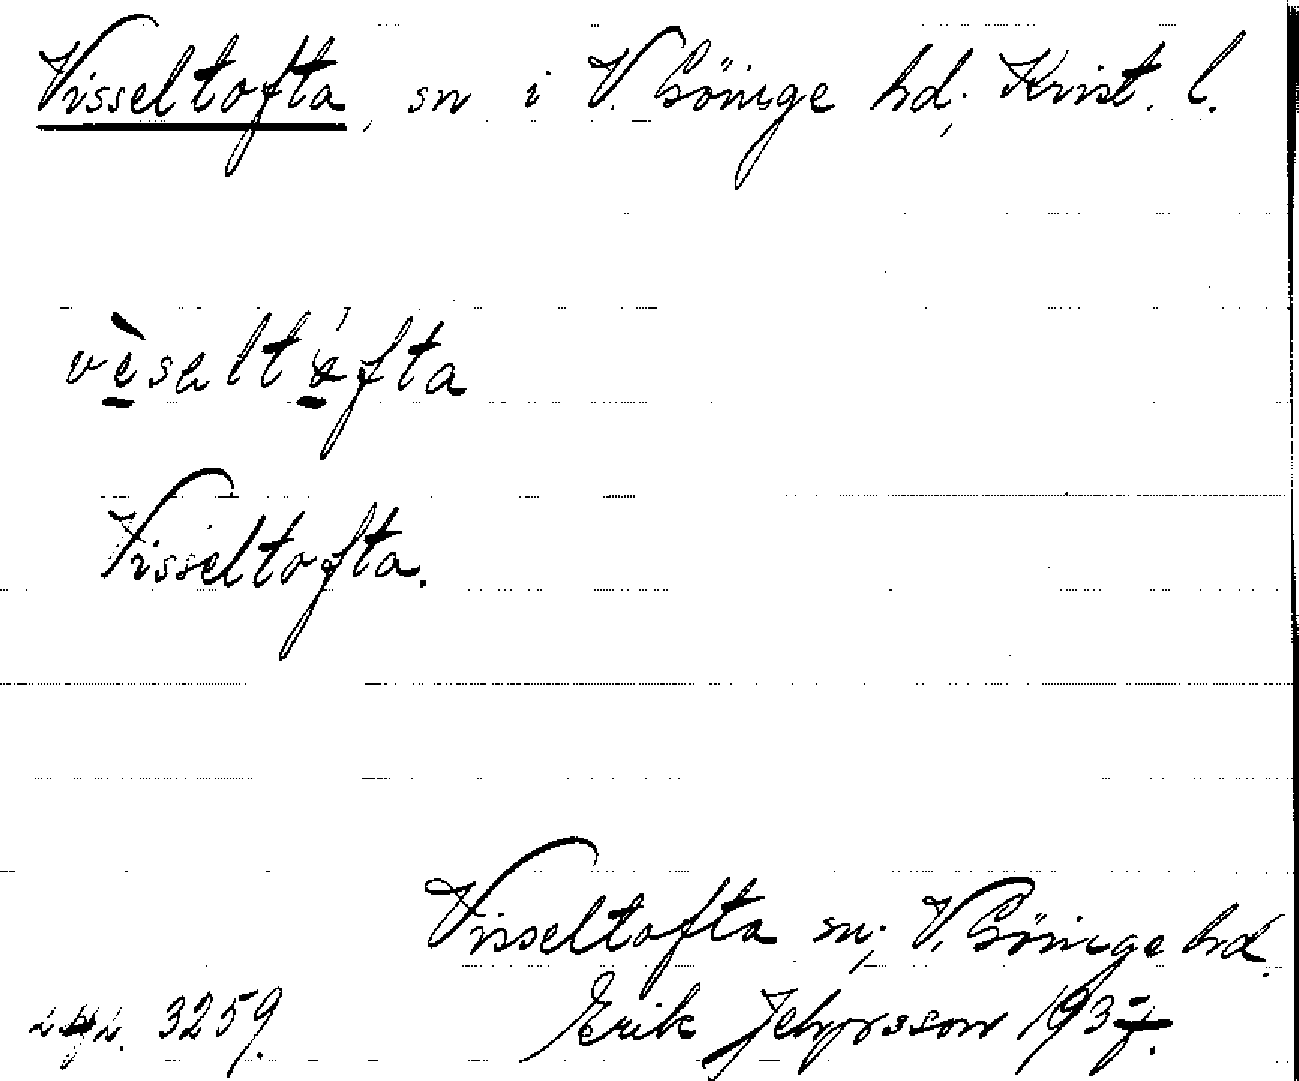 Visseltofta, sn i V. Göinge hd, Krist. l.
Visseltofta.
Visseltofta sn; V. Göinge hd.
3259. Erik 1937.